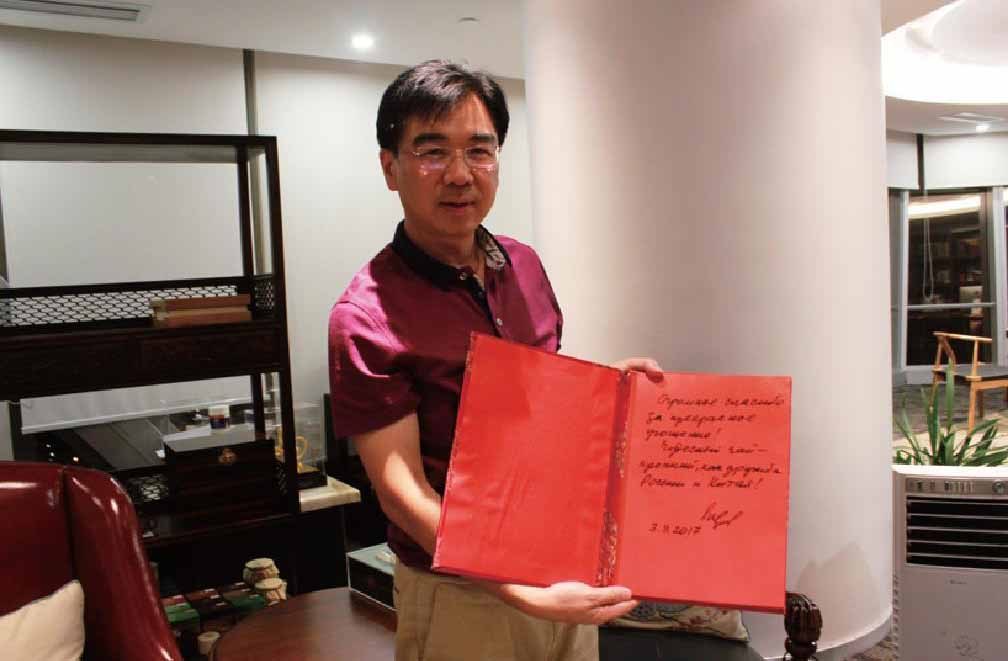 Огромное спасибо
за прекрасное
угощение!
Чудесный чай –
крепкий, как дружба
России и Китая!
3.11.2017